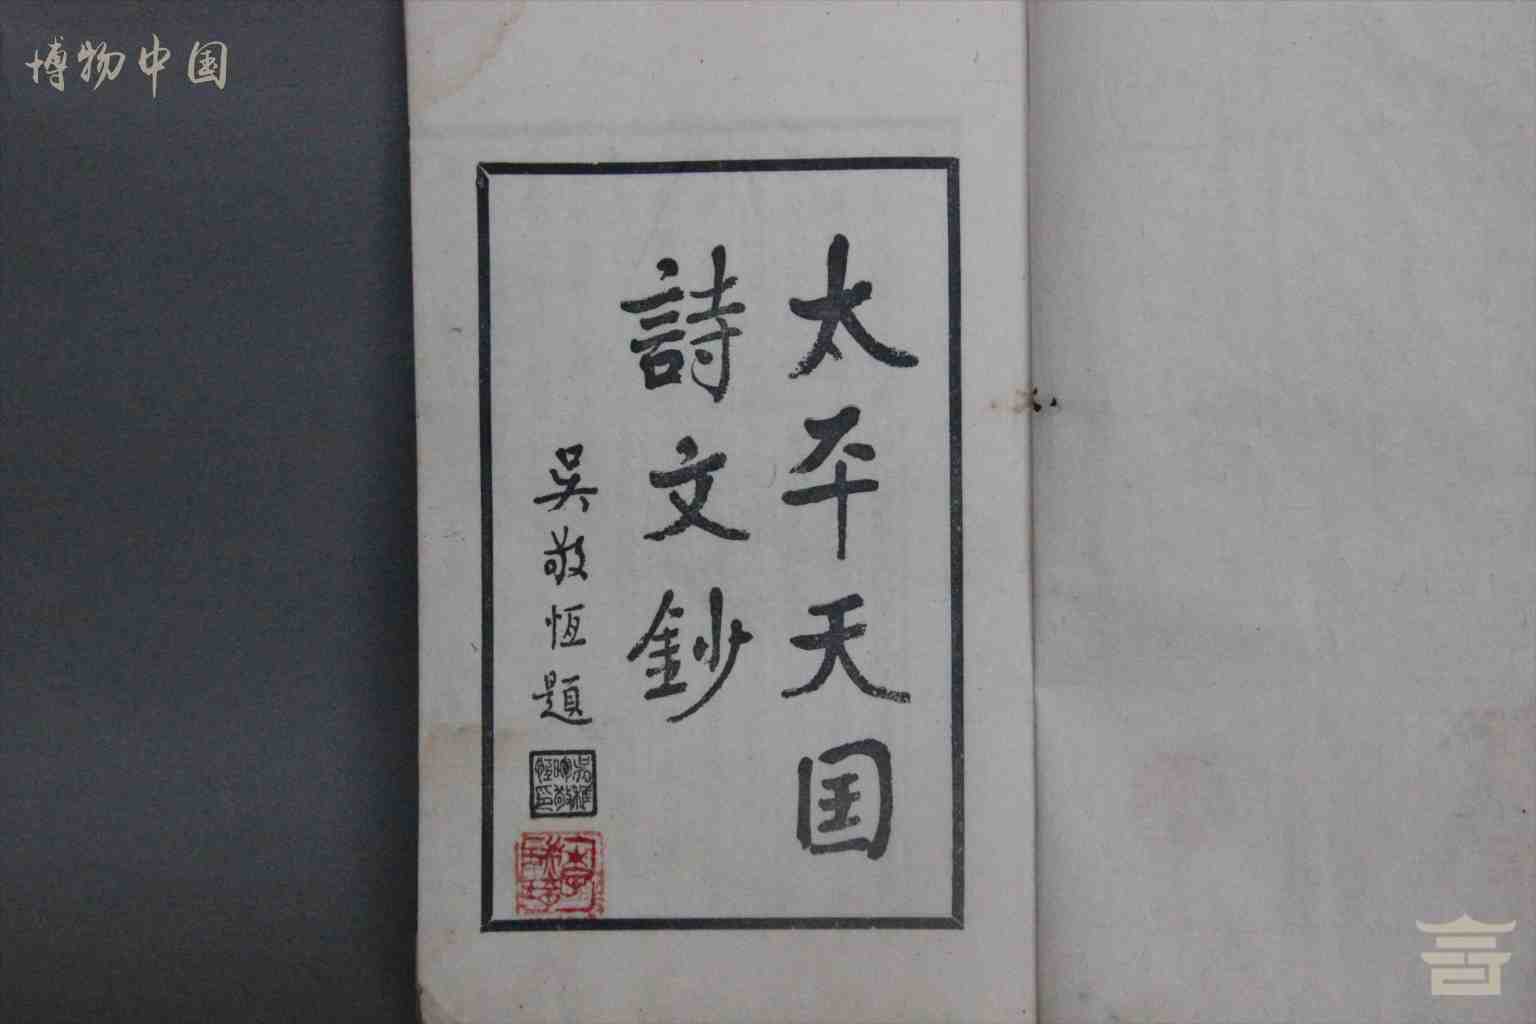 博物中国
太平天囯
詩文鈔
吳敬恆題